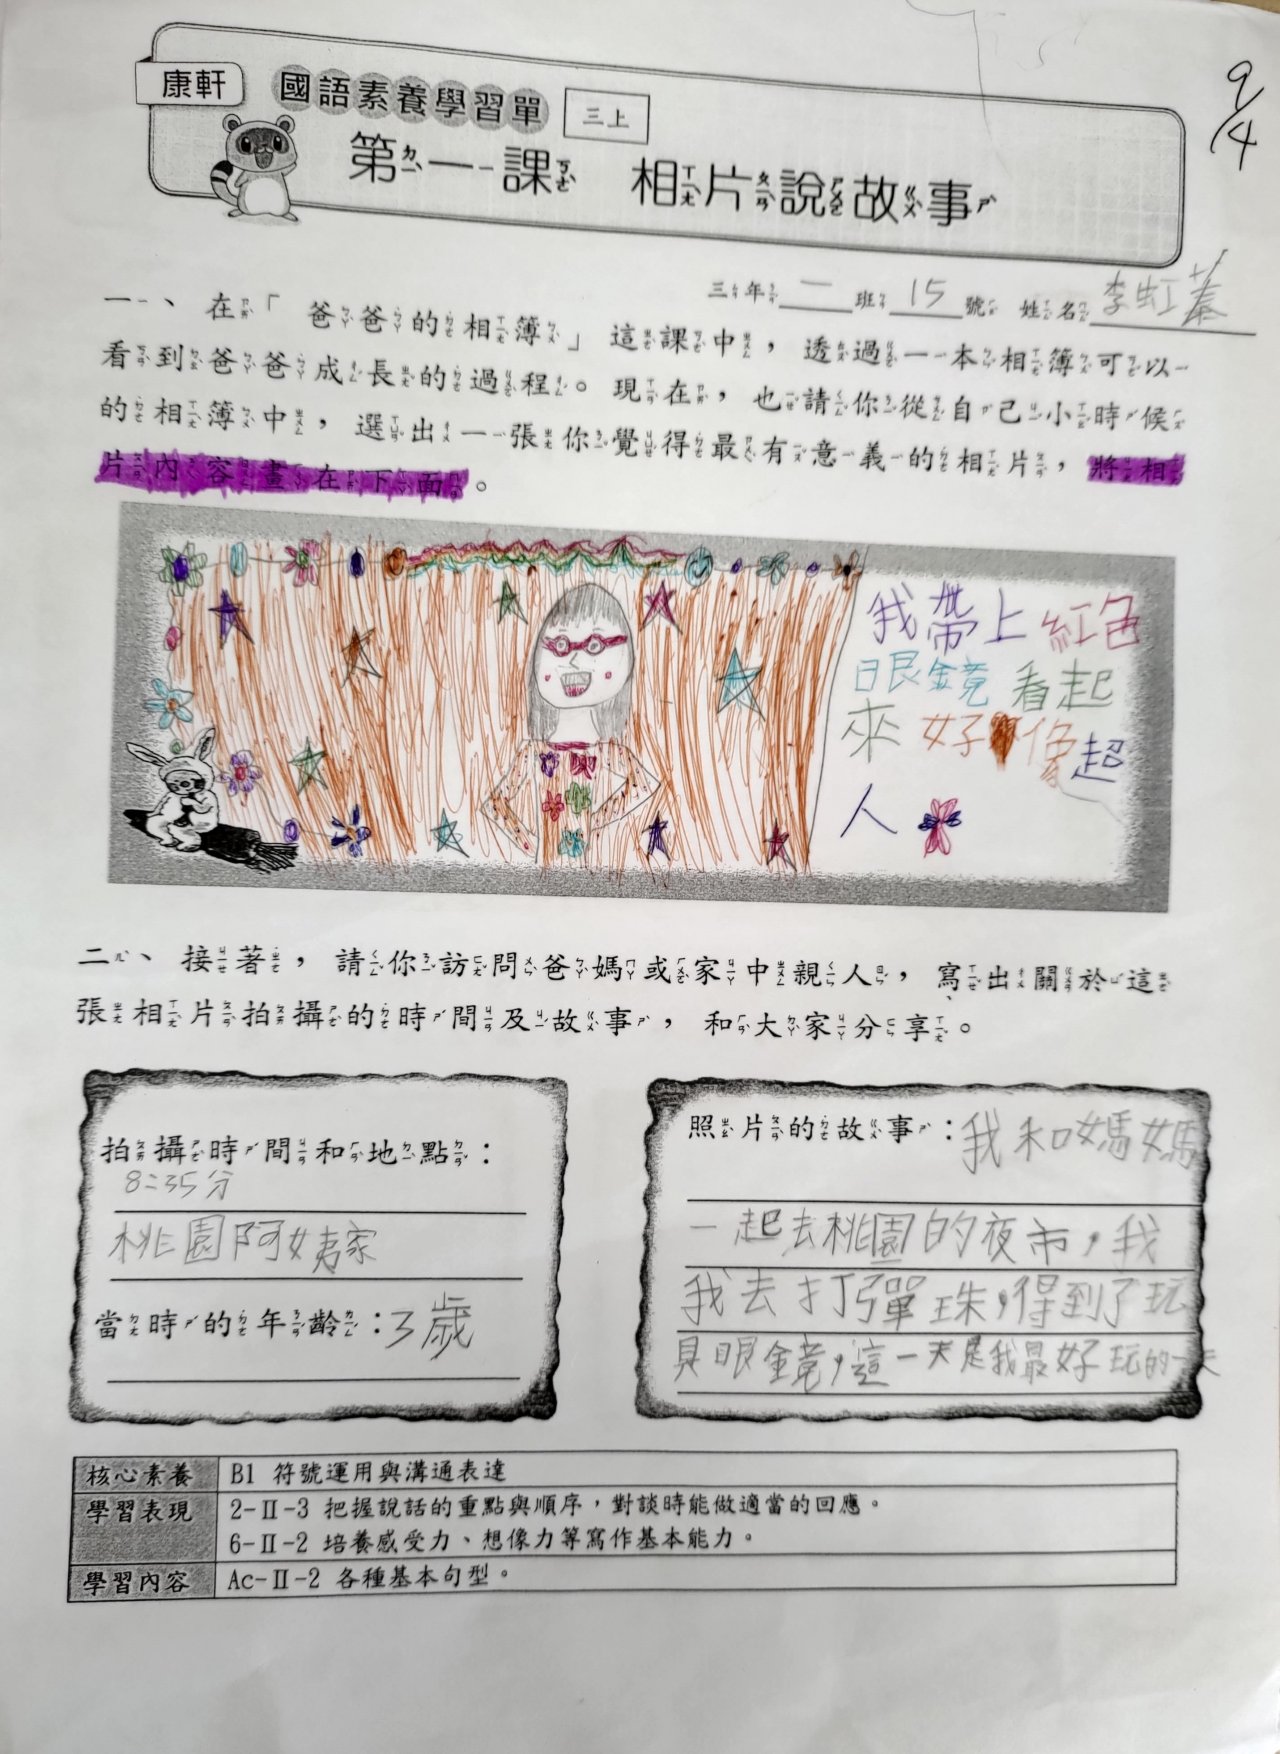 9/4
康軒
國語素養學習單 三上
第一課 相片說故事
三年二班15號 姓名李虹蓁
一、在「爸爸的相簿」這課中，透過一本相簿可以
看到爸爸成長的過程。現在，也請你從自己小時候
的相簿中，選出一張你覺得最有意義的相片，將相
片內容畫在下面。
我帶上紅色
眼鏡看起
來好像超
人
二、接著，請你訪問爸媽或家中親人，寫出關於這
張相片拍攝的時間及故事，和大家分享。
拍攝時間和地點：
8:35分
桃園阿姨家
當時的年齡：3歲
照片的故事：我和媽媽
一起去桃園的夜市，我
我去打彈珠，得到了玩
具眼鏡，這一天是我最好玩的一天
核心素養 B1 符號運用與溝通表達
學習表現 2-Ⅱ-3 把握說話的重點與順序，對談時能做適當的回應。
6-Ⅱ-2 培養感受力、想像力等寫作基本能力。
學習內容 Ac-Ⅱ-2 各種基本句型。